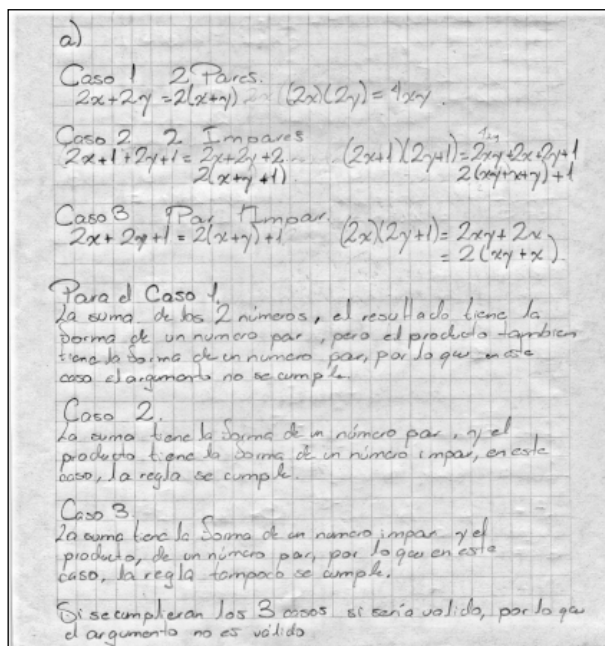 a)
Caso 1 2 Pares.
2x+2y=2(x+y) 2x (2x)(2y)=4xy.
Caso 2. 2 Impares
4xy
2x+1+2y+1=2x+2y+2 (2x+1)(2y+1)=2xy+2x+2y+1
2(x+y+1) 2(xy+x+y)+1
Caso 3 Par Impar.
2x+2y+1=2(x+y)+1 (2x)(2y+1)=2xy+2x
=2(xy+x)
Para el Caso 1.
La suma de los 2 números, el resultado tiene la
forma de un numero par, pero el producto tambien
tiene la forma de un numero par, por lo que en este
caso el argumento no se cumple.
Caso 2.
La suma tiene la forma de un número par, y el
producto tiene la forma de un número impar, en este
caso, la regla se cumple.
Caso 3.
La suma tiene la forma de un numero impar y el
producto, de un número par, por lo que en este
caso, la regla tampoco se cumple.
Si se cumplieran los 3 casos si sería valido, por lo que
el argumento no es válido